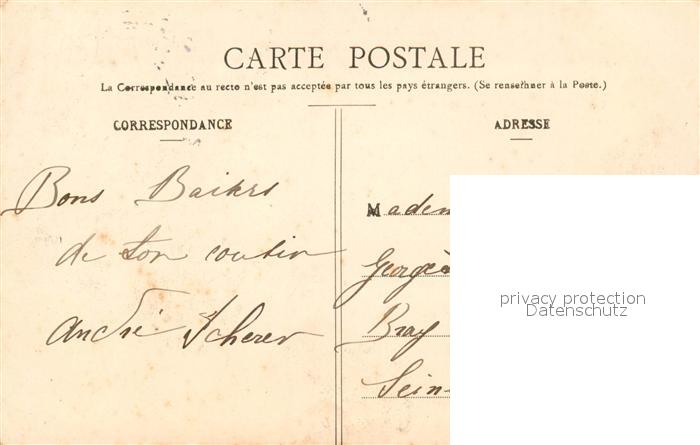 CARTE POSTALE
La Correspondance au recto n'est pas acceptée par tous les pays étrangers. (Se renseigner à la Poste.)
CORRESPONDANCE
ADRESSE
Bons Baisers
de ton cousin
André Scherer
Madem
George
Bray
Sein
privacy protection
Datenschutz